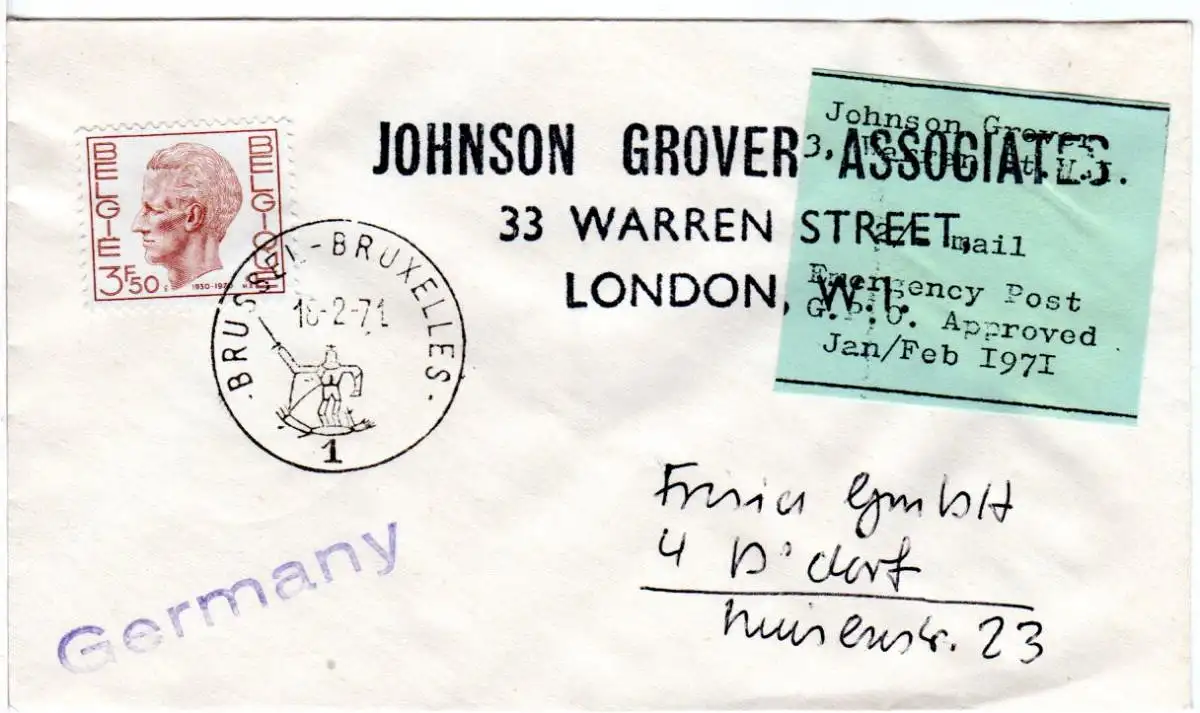 BELGIE
BELGIQUE
3F50
1930-1970
BRUSSEL-BRUXELLES
16-2-71
1
JOHNSON GROVER ASSOCIATES.
33 WARREN STREET,
LONDON, W.1.
Johnson Grover
3, Warren St. W.I
mail
Emergency Post
G.P.O. Approved
Jan/Feb I97I
Germany
GmbH
4 D'dorf
23